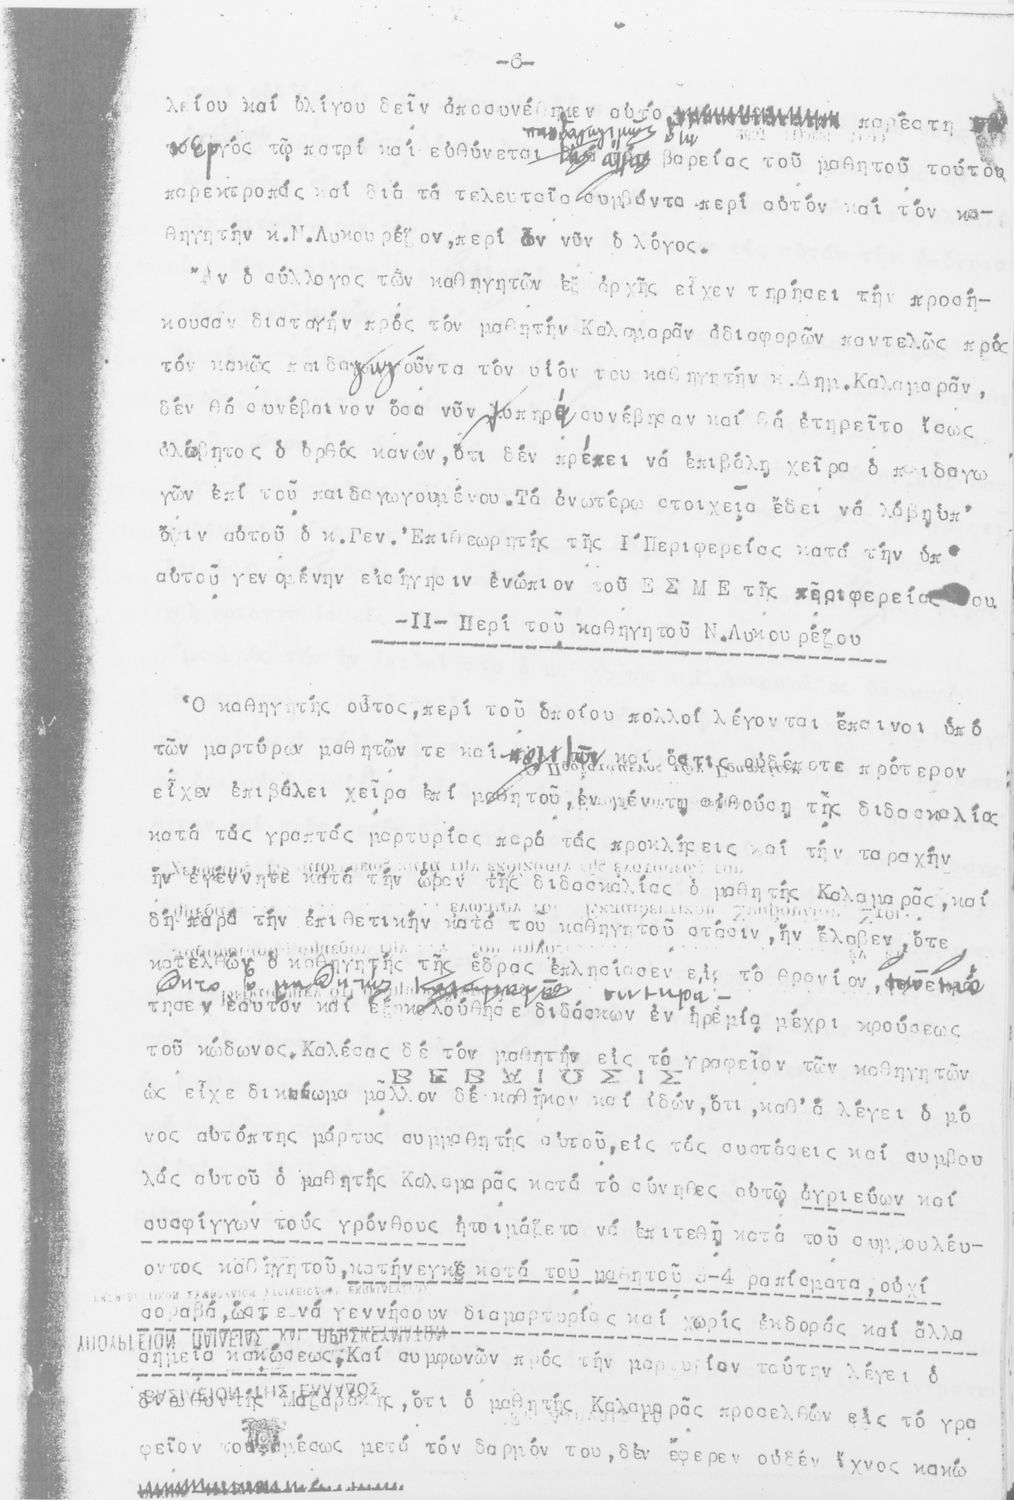 -6-
λείου καί ὀλίγου δεῖν ἀποσυνέθηκεν αὐτό, παρέστη
τῷ πατρί καί εὐθύνεται διά βαρείας τοῦ μαθητοῦ τούτου
παρεκτροπάς καί διά τά τελευταῖα συμβάντα περί αὐτόν καί τόν κα-
θηγητήν κ.Ν.Λυκουρέζον, περί ὧν νῦν ὁ λόγος.
Ἄν ὁ σύλλογος τῶν καθηγητῶν ἐξ ἀρχῆς εἶχεν τηρήσει τήν προσή-
κουσαν διαταγήν πρός τόν μαθητήν Καλαμαρᾶν ἀδιαφορῶν παντελῶς πρός
τόν κακῶς παιδαγωγοῦντα τόν υἱόν του καθηγητήν κ.Δημ.Καλαμαρᾶν,
δέν θά συνέβαινον ὅσα νῦν λυπηρά συνέβησαν καί θά ἐτηρεῖτο ἴσως
ἀλώβητος ὁ ὀρθός κανών, ὅτι δέν πρέπει νά ἐπιβάλη χεῖρα ὁ παιδαγω
γῶν ἐπί τοῦ παιδαγωγουμένου. Τά ἀνωτέρω στοιχεῖα ἔδει νά λάβη ὑπ'
ὄψιν αὐτοῦ ὁ κ.Γεν.Ἐπιθεωρητής τῆς Ι' Περιφερείας κατά τήν ὑπ'
αὐτοῦ γενομένην εἰσήγησιν ἐνώπιον τοῦ Ε Σ Μ Ε τῆς περιφερείας του
-ΙΙ- Περί τοῦ καθηγητοῦ Ν.Λυκουρέζου
Ὁ καθηγητής οὗτος, περί τοῦ ὁποίου πολλοί λέγονται ἔπαινοι ὑπό
τῶν μαρτύρων μαθητῶν τε καί πολιτῶν καί ὅστις οὐδέποτε πρότερον
εἶχεν ἐπιβάλει χεῖρα ἐπί μαθητοῦ, ἐν μέν τῃ αἰθούσῃ τῆς διδασκαλίας
κατά τάς γραπτάς μαρτυρίας παρά τάς προκλήσεις καί τήν ταραχήν
ἥν ἐγέννησε κατά τήν ὥραν τῆς διδασκαλίας ὁ μαθητής Καλαμαρᾶς, καί
δή παρά τήν ἐπιθετικήν κατά τοῦ καθηγητοῦ στάσιν, ἥν ἔλαβεν, ὅτε
κατελθών ὁ καθηγητής τῆς ἕδρας ἐπλησίασεν εἰς τό θρανίον,
ὁ μαθητής Καλαμαρᾶς
τησεν ἑαυτόν καί ἐξηκολούθησε διδάσκων ἐν ἠρεμίᾳ μέχρι κρούσεως
τοῦ κώδωνος. Καλέσας δέ τόν μαθητήν εἰς τό γραφεῖον τῶν καθηγητῶν
ΒΕΒΑΙΩΣΙΣ
ὡς εἶχε δικαίωμα μᾶλλον δέ καθῆκον καί ἰδών, ὅτι, καθ'ἅ λέγει ὁ μό
νος αὐτόπτης μάρτυς συμμαθητής αὐτοῦ, εἰς τάς συστάσεις καί συμβου
λάς αὐτοῦ ὁ μαθητής Καλαμαρᾶς κατά τό σύνηθες αὐτῷ ἀγριεύων καί
συσφίγγων τούς γρόνθους ἡτοιμάζετο νά ἐπιτεθῇ κατά τοῦ συμβουλεύ-
οντος καθηγητοῦ, κατήνεγκε κατά τοῦ μαθητοῦ 3-4 ραπίσματα, οὐχί
σοβαρά, ὥστε νά γεννήσουν διαμαρτυρίας καί χωρίς ἐκδοράς καί ἄλλα
ΥΠΟΥΡΓΕΙΟΝ ΠΑΙΔΕΙΑΣ ΚΑΙ ΘΡΗΣΚΕΥΜΑΤΩΝ
σημεῖα κακώσεως. Καί συμφωνῶν πρός τήν μαρτυρίαν ταύτην λέγει ὁ
ΒΑΣΙΛΕΙΟΝ ΤΗΣ ΕΛΛΑΔΟΣ
διευθυντής Μαζαράκης, ὅτι ὁ μαθητής Καλαμαρᾶς προσελθών εἰς τό γρα
φεῖον του ἀμέσως μετά τόν δαρμόν του, δέν ἔφερεν οὐδέν ἴχνος κακώ